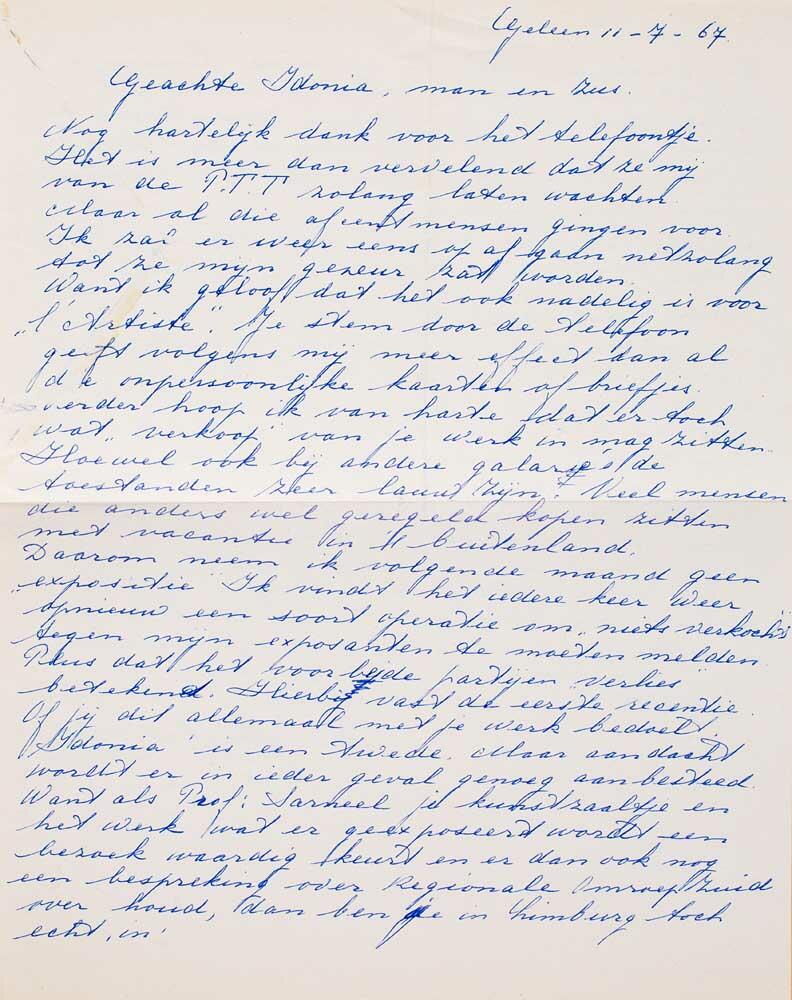 Geleen 11-7-67.
Geachte Idonia, man en zus.
Nog hartelijk dank voor het telefoontje.
Het is meer dan vervelend dat ze mij
van de P.T.T zolang laten wachten.
Maar al die mensen gingen voor.
Ik zal er weer eens op af gaan netzolang
tot ze mijn gezeur zat worden.
Want ik geloof dat het ook nadelig is voor
„l'Artiste". Je stem door de telefoon
geeft volgens mij meer effect dan al
die onpersoonlijke kaarten of briefjes.
Verder hoop ik van harte dat er toch
wat „verkoop" van je werk in mag zitten.
Hoewel ook bij andere galaries de
toestanden zeer lauw zijn. Veel mensen
die anders wel geregeld kopen zitten
met vacantie in 't buitenland.
Daarom neem ik volgende maand geen
„expositie" Ik vindt het iedere keer weer
opnieuw een soort operatie om „niets verkocht"
tegen mijn exposanten te moeten melden.
Plus dat het voor beide partijen „verlies"
betekend. Hierbij vast de eerste recentie.
Of jij dit allemaal met je werk bedoelt,
„Idonia" is een twede. Maar aandacht
wordt er in ieder geval genoeg aanbesteed.
Want als Prof: Sarneel je kunstzaaltje en
het werk wat er geexposeerd wordt een
bezoek waardig keurt en er dan ook nog
een bespreking over Regionale Omroep Zuid
over houd, dan ben je in Limburg toch
echt „in"